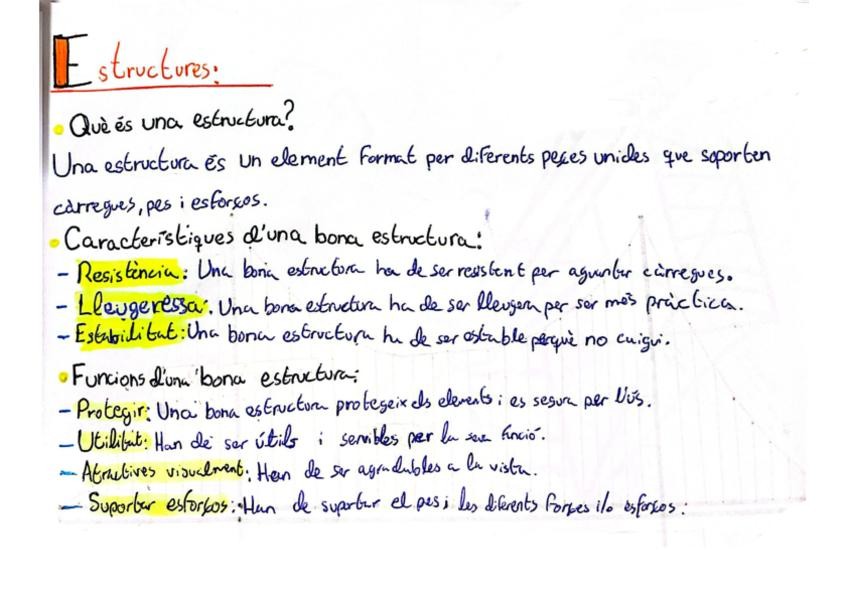 Estructures:
Què és una estructura?
Una estructura és un element format per diferents peçes unides que soporten
càrregues, pes i esforços.
Característiques d'una bona estructura:
- Resistència: Una bona estructura ha de ser resistent per aguantar càrregues.
- Lleugeressa: Una bona estructura ha de ser lleugera per ser més pràctica.
- Estabilitat: Una bona estructura ha de ser estable perquè no cuigui.
Funcions d'una bona estructura:
- Protegir: Una bona estructura protegeix els elements i es segura per l'ús.
- Utilitat: Han de ser útils i servibles per la seva funció.
- Atractives visualment: Han de ser agradables a la vista.
- Suportar esforços: Han de suportar el pes i les diferents forçes i/o esforços: